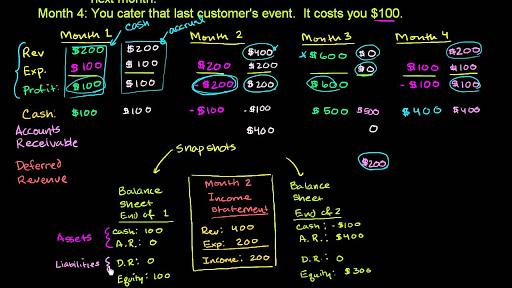 next month.
Month 4: You cater that last customer's event. It costs you $100.
Month 1 cash accrual Month 2 Month 3 Month 4
Rev $200 $200 $400 x $600 $0 $200
Exp. $100 $100 $200 $200 $0 $100 $100
Profit: $100 $100 - $200 $200 $600 - $100 $100
Cash: $100 $100 - $100 - $100 $500 $500 $400 $400
Accounts Receivable $400 0
Deferred Revenue $200
Snapshots
Balance Sheet End of 1
Assets { cash: 100
A.R.: 0
Liabilities { D.R: 0
Equity: 100
Month 2
Income
Statement
Rev: 400
Exp: 200
Income: 200
Balance
Sheet
End of 2
cash: - $100
A.R.: $400
D.R: 0
Equity: $300